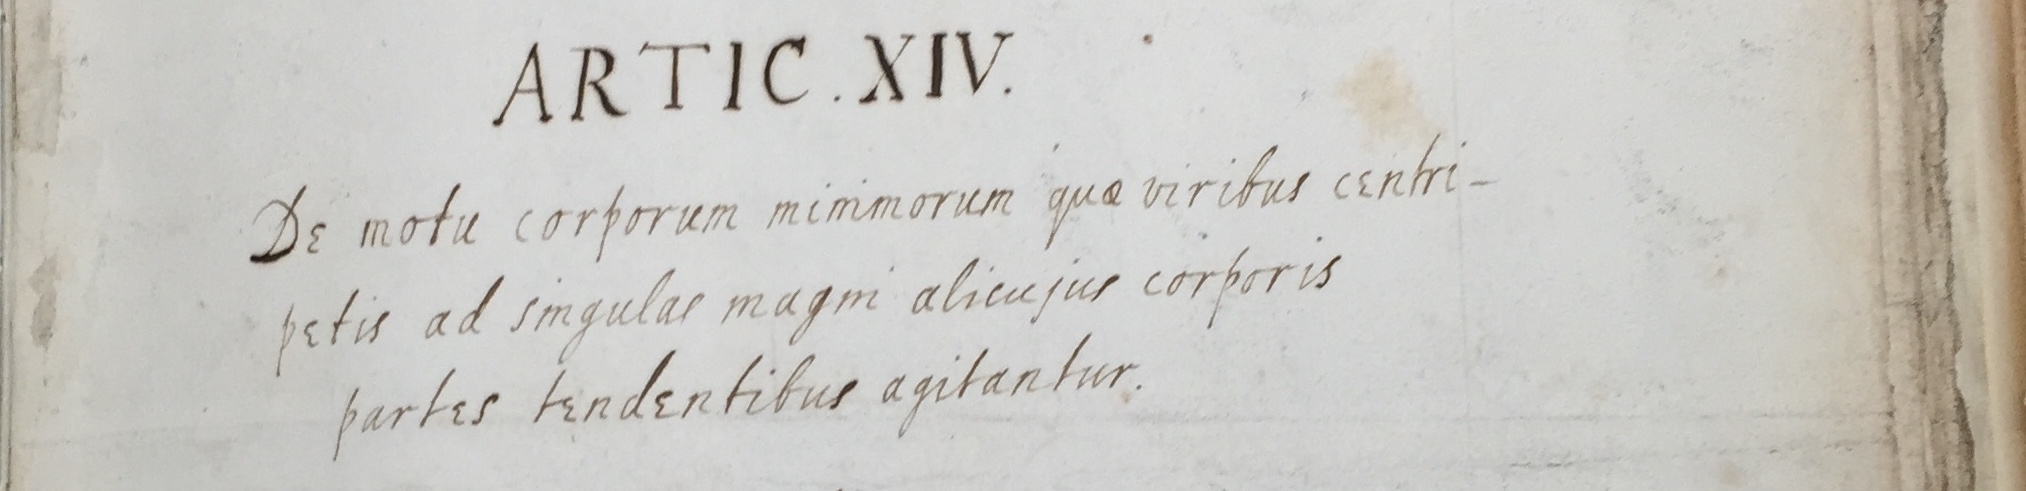 ARTIC. XIV.
De motu corporum minimorum quæ viribus centri-
petis ad singulas magni alicujus corporis
partes tendentibus agitantur.